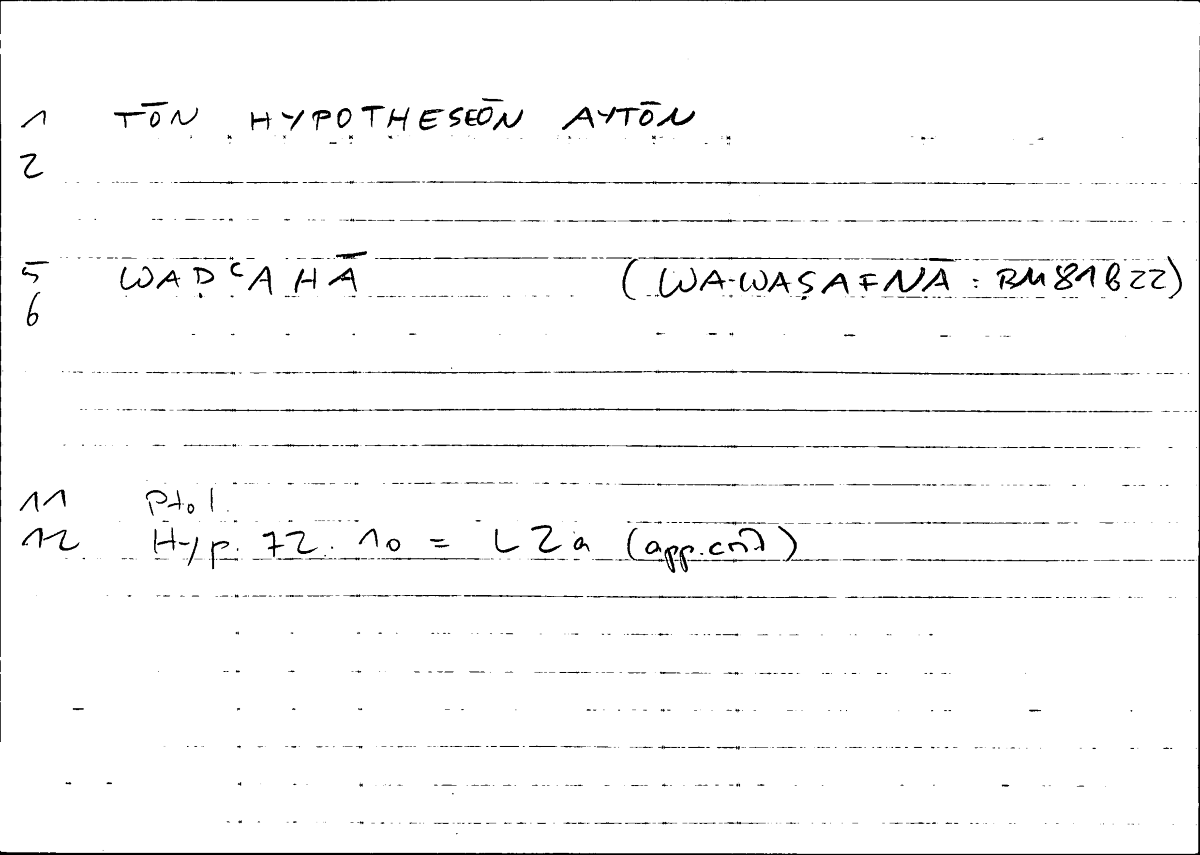 1 TŌN HYPOTHESEŌN AYTŌN
2
5 WAḌʿAHĀ (WA-WAṢAFNĀ : BM81B22)
6
11 Ptol.
12 Hyp. 72. 10 = L2a (app. crit)